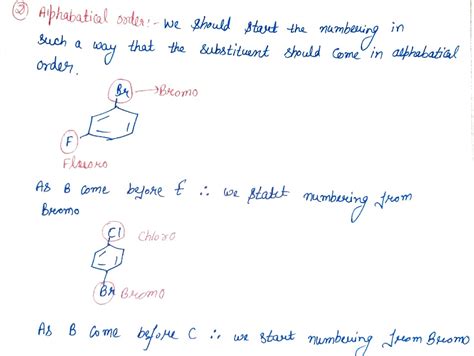 ② Alphabatical order:- We should start the numbering in
such a way that the substituent should come in alphabatical
order.
Br → Bromo
F
Fluoro
As B come before f ∴ we statet numbering from
Bromo
Cl Chloro
Br Bromo
As B come before C ∴ we start numbering from Bromo